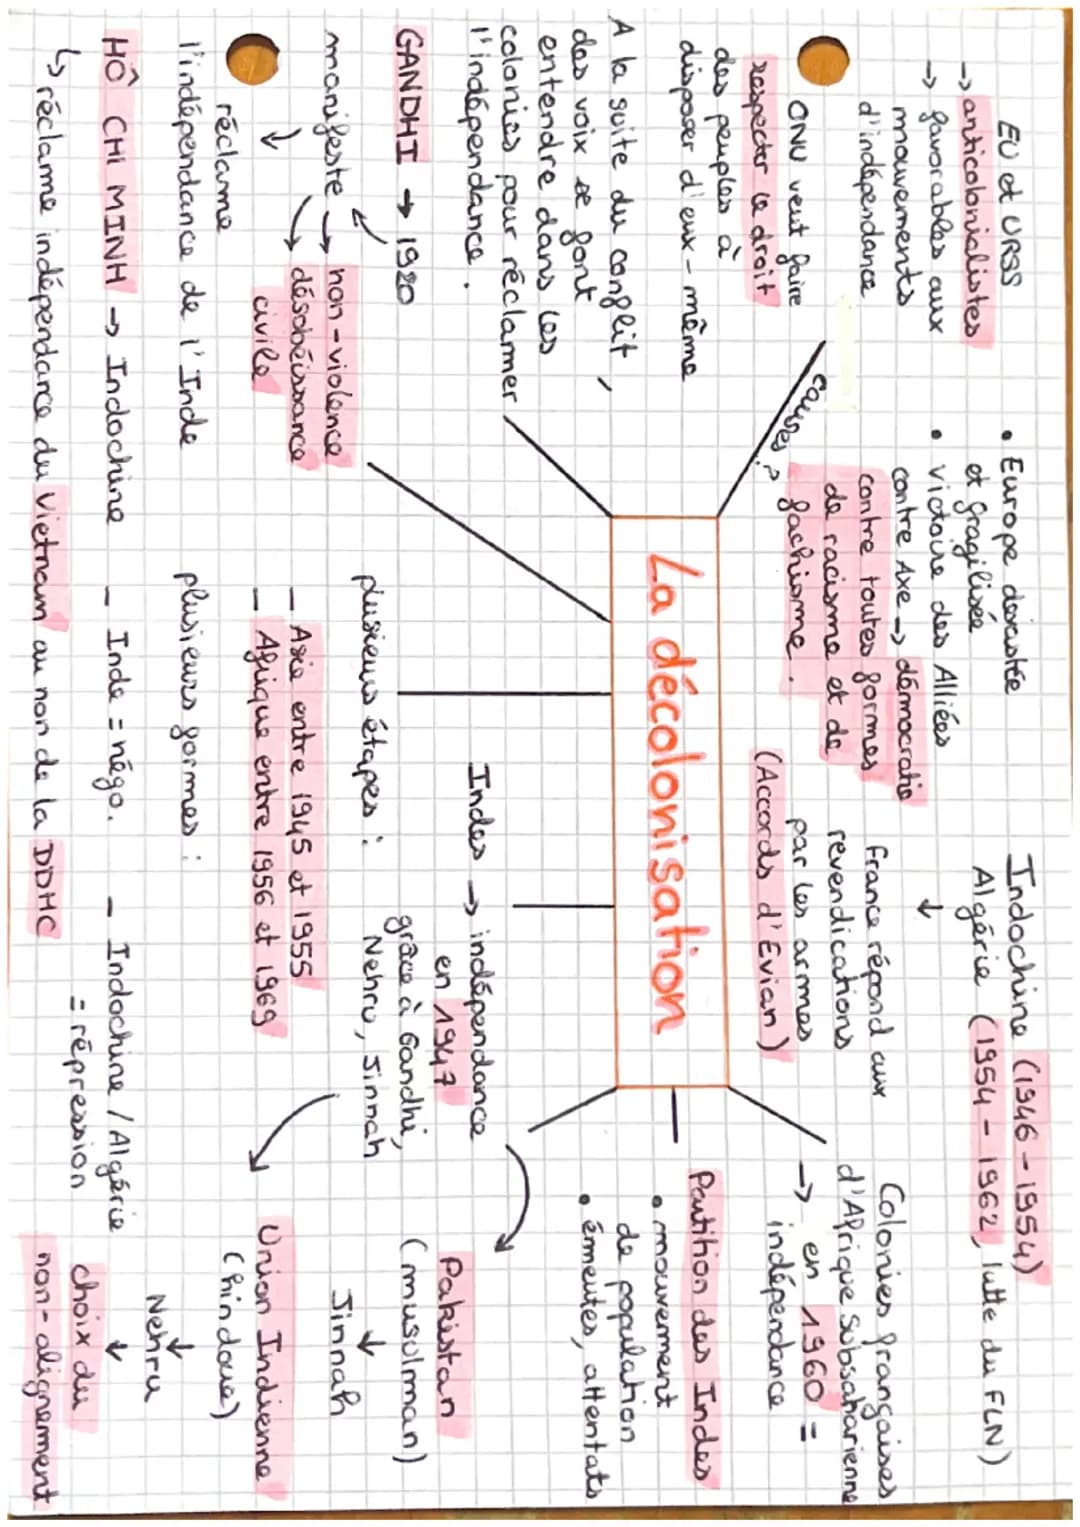 EU et URSS
→ anticolonialistes
→ favorables aux
mouvements
d'indépendance
• Europe dévastée
et fragilisée
• victoire des Alliées
contre Axe → démocratie
contre toutes formes
de racisme et de
fachisme.
causes :
Indochine (1946-1954)
Algérie (1954-1962, lutte du FLN)
↓
France répond aux
revendications
par les armes
(Accords d'Evian)
Colonies françaises
d'Afrique Subsaharienne
→ en 1960 =
indépendance
ONU veut faire
respecter le droit
des peuples à
disposer d'eux-même
La décolonisation
Partition des Indes
• mouvement
de population
• émeutes, attentats
A la suite du conflit,
des voix se font
entendre dans les
colonies pour réclamer
l'indépendance.
GANDHI → 1920
manifeste → non-violence
→ désobéissance
civile
↓
réclame
l'indépendance de l'Inde
Indes → indépendance
en 1947
grâce à Gandhi,
Nehru, Jinnah
Pakistan
(musulman)
↓
Jinnah
Union Indienne
(hindoue)
↓
Nehru
↓
choix du
non-alignement
plusieurs étapes :
- Asie entre 1945 et 1955
- Afrique entre 1956 et 1969
plusieurs formes :
- Inde = négo.
- Indochine / Algérie
= répression
HÔ CHI MINH → Indochine
↳ réclame indépendance du Vietnam au non de la DDHC